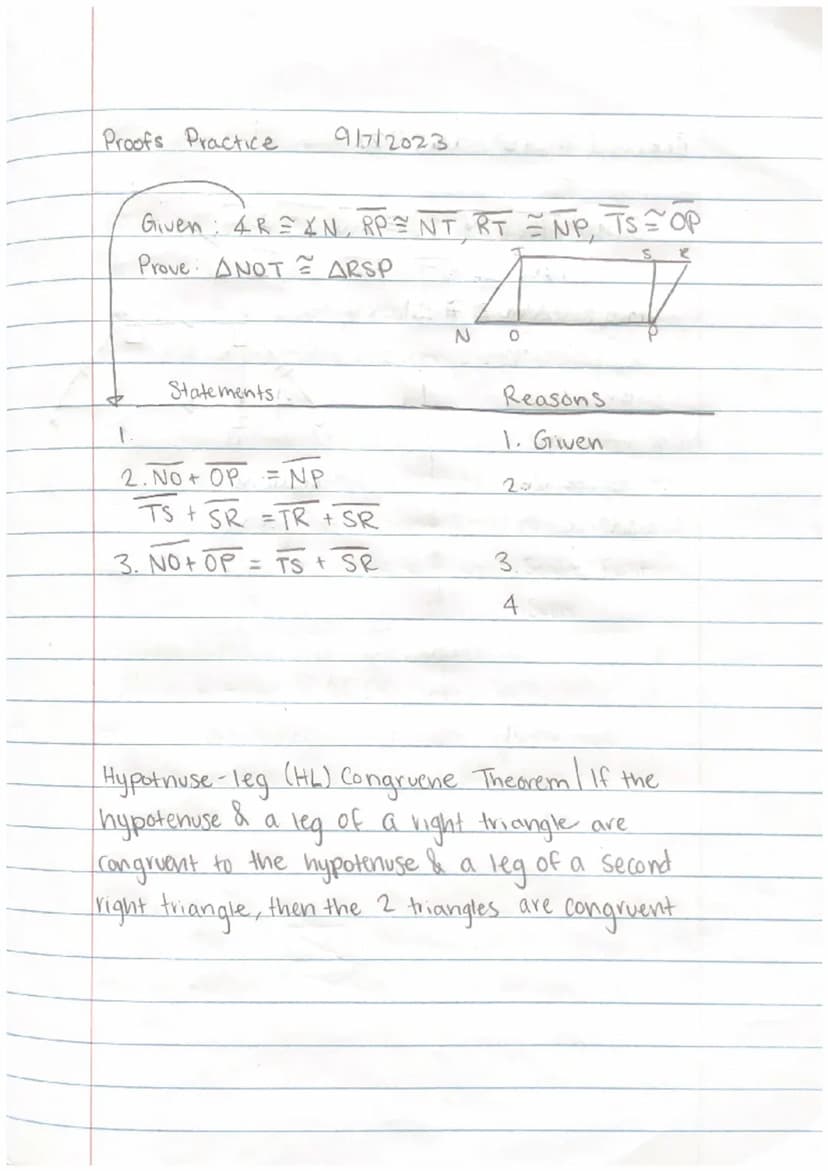 Proofs Practice 9/7/2023
Given: ∡R ≅ ∡N, R̅P̅ ≅ N̅T̅, R̅T̅ ≅ N̅P̅, T̅S̅ ≅ O̅P̅
Prove: △NOT ≅ △RSP
T S R
N O P
Statements Reasons
1. 1. Given
2. N̅O̅ + O̅P̅ = N̅P̅ 2.
T̅S̅ + S̅R̅ = T̅R̅ + S̅R̅
3. N̅O̅ + O̅P̅ = T̅S̅ + S̅R̅ 3.
4
Hypotnuse-leg (HL) Congruene Theorem | If the
hypotenuse & a leg of a right triangle are
congruent to the hypotenuse & a leg of a second
right triangle, then the 2 triangles are congruent